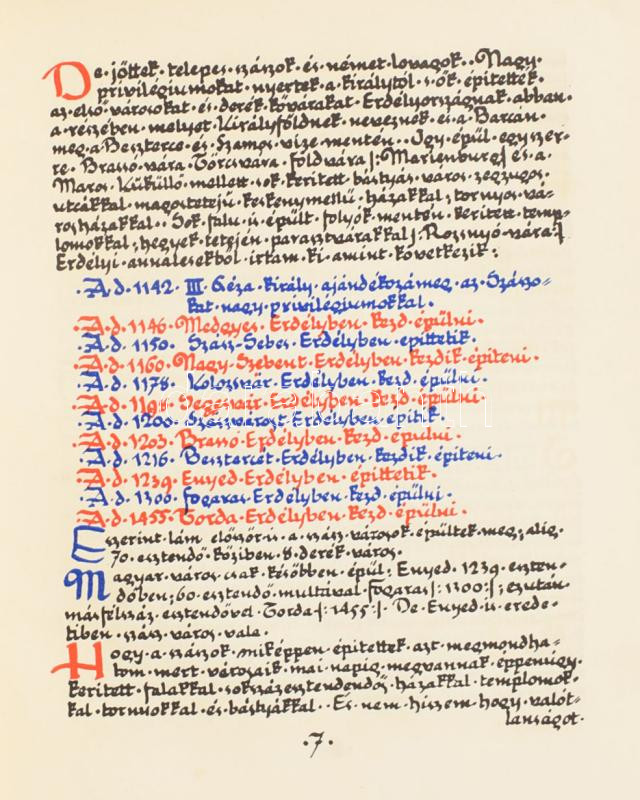 De·jöttek·telepes·szászok·és·német·lovagok··Nagy·
privilégiumokat·nyertek·a·királytól·s·ők·építették·
az·első·városokat·és·derék·kővárakat·Erdélyországnak·abban·
a·részében·melyet·Királyföldnek·neveznek·és·a·Barcán·
meg·a·Beszterce·és·Szamos·vize·mentén··Úgy·épül·egyszer-
re·Brassó·vára·Törcsvára·földvára/:Marienburg/és·a·
Maros·Küküllő·mellett·sok·kerített·bástyás·város·zegzugos·
utcákkal·magostetejű·keskenymellű·házakkal;tornyos·vá-
rosházakkal··Sok·falu·is·épült·folyók·mentén·kerített·temp-
lomokkal;hegyek·tetején·parasztvárakkal/:Rozsnyó·vára:/
Erdélyi·annálesekből·írtam·ki·amint·következik:
·A·d·1142·III·Géza·király·ajándékozá·meg·az·Szászo=
kat·nagy·privilégiumokkal·
·A·d·1146·Medgyes·Erdélyben·kezd·épülni·
·A·d·1150·Szász·Sebes·Erdélyben·építtetik·
·A·d·1160·Nagy·Szebent·Erdélyben·kezdik·építeni·
·A·d·1178·Kolozsvár·Erdélyben·kezd·épülni·
·A·d·1191·Segesvár·Erdélyben·kezd·épülni·
·A·d·1200·Szászvárost·Erdélyben·építik·
·A·d·1203·Brassó·Erdélyben·kezd·épülni·
·A·d·1216·Besztercét·Erdélyben·kezdik·építeni·
·A·d·1239·Enyed·Erdélyben·építtetik·
·A·d·1300·fogaras·Erdélyben·kezd·épülni·
·A·d·1455·Torda·Erdélyben·kezd·épülni·
Eszerint·lám·először·is·a·szász·városok·épültek·meg;alig·
70·esztendő·köziben·8·derék·város·
Magyar·város·csak·későbben·épül:Enyed·1239·eszten-
dőben;60·esztendő·multával·fogaras/:1300:/;ezután·
másfélszáz·esztendővel·Torda/:1455:/·De·Enyed·is·erede-
tiben·szász·város·vala·
Hogy·a·szászok·miképpen·építettek·azt·megmondha-
tom·mert·városaik·mai·napig·megvannak·éppenúgy·
kerített·falakkal·sokszázesztendendős·házakkal·templomok-
kal·tornyokkal·és·bástyákkal··És·nem·hiszem·hogy·valót-
lanságot·
·7·